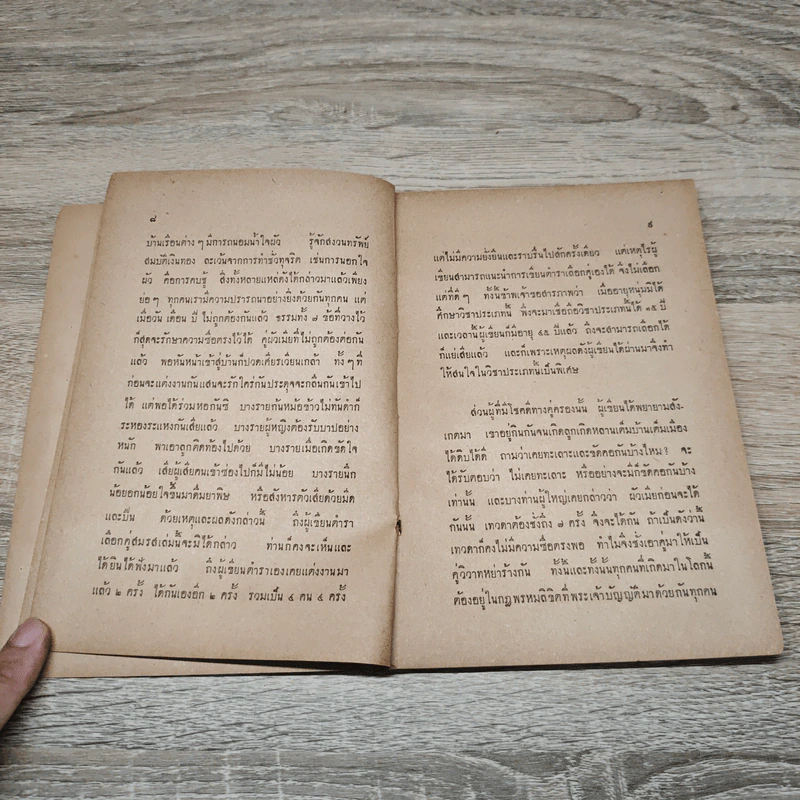 ๘
บ้านเรือนต่าง ๆ มีการถนอมน้ำใจผัว รู้จักสงวนทรัพย์
สมบัติเงินทอง ละเว้นจากการทำชั่วทุจริต เช่นการนอกใจ
ผัว คือการคบชู้ สิ่งทั้งหลายแหล่ดังได้กล่าวมาแล้วเพียง
ย่อ ๆ ทุกคนเรามีความปรารถนาอย่างยิ่งด้วยกันทุกคน แต่
เมื่อวัน เดือน ปี ไม่ถูกต้องกันแล้ว ธรรมทั้ง ๗ ข้อที่วางไว้
ก็สุดจะรักษาความซื่อตรงไว้ได้ คู่ผัวเมียที่ไม่ถูกต้องต่อกัน
แล้ว พอหันหน้าเข้าสู่บ้านก็ปวดเศียรเวียนเกล้า ทั้ง ๆ ที่
ก่อนจะแต่งงานกันแสนจะรักใคร่กันประดุจจะกลืนกันเข้าไป
ได้ แต่พอได้ร่วมหอกันซิ บางรายก้นหม้อข้าวไม่ทันดำก็
ระหองระแหงกันเสียแล้ว บางรายผู้หญิงต้องรับบาปอย่าง
หนัก พาเอาลูกติดท้องไปด้วย บางรายเมื่อเกิดขัดใจ
กันแล้ว เสียผู้เสียคนเข้าซ่องไปก็มีไม่น้อย บางรายนึก
น้อยอกน้อยใจขึ้นมาดื่มยาพิษ หรือสังหารตัวเสียด้วยมีด
และปืน ด้วยเหตุและผลดังกล่าวนี้ ถึงผู้เขียนตำรา
เลือกคู่สมรสเล่มนี้จะมิได้กล่าว ท่านก็คงจะเห็นและ
ได้ยินได้ฟังมาแล้ว ถึงผู้เขียนตำราเองเคยแต่งงานมา
แล้ว ๒ ครั้ง ได้กันเองอีก ๒ ครั้ง รวมเป็น ๔ คน ๔ ครั้ง
๙
แต่ไม่มีความยั่งยืนและราบรื่นไปสักครั้งเดียว แต่เหตุไรผู้
เขียนสามารถแนะนำการเขียนตำราเลือกคู่เองได้ จึงไม่เลือก
แต่ที่ดี ๆ ทั้งนี้ข้าพเจ้าขอสารภาพว่า เมื่ออายุหนุ่มมิได้
ศึกษาวิชาประเภทนี้ พึ่งจะมาเชื่อถือวิชาประเภทนี้ได้ ๑๕ ปี
และเวลานี้ผู้เขียนก็มีอายุ ๔๕ ปีแล้ว ถึงจะสามารถเลือกได้
ก็แย่เสียแล้ว และก็เพราะเหตุผลดังผู้เขียนได้ผ่านมาจึงทำ
ให้สนใจในวิชาประเภทนี้เป็นพิเศษ
ส่วนผู้ที่มีโชคดีทางคู่ครองนั้น ผู้เขียนได้พยายามสัง-
เกตมา เขาอยู่กินกันจนเกิดลูกเกิดหลานเต็มบ้านเต็มเมือง
ได้ดิบได้ดี ถามว่าเคยทะเลาะและขัดคอกันบ้างไหม? จะ
ได้รับตอบว่า ไม่เคยทะเลาะ หรืออย่างจะมีก็ขัดคอกันบ้าง
เท่านั้น และบางท่านผู้ใหญ่เคยกล่าวว่า ผัวเมียก่อนจะได้
กันนั้น เทวดาต้องชั่งถึง ๗ ครั้ง จึงจะได้กัน ถ้าเป็นดังว่านี้
เทวดาก็คงไม่มีความซื่อตรงพอ ทำไมจึงชั่งเอาคู่มาให้เป็น
คู่วิวาทหย่าร้างกัน ทั้งนี้และทั้งนั้นทุกคนที่เกิดมาในโลกนี้
ต้องอยู่ในกฎพรหมลิขิตที่พระเจ้าบัญญัติมาด้วยกันทุกคน